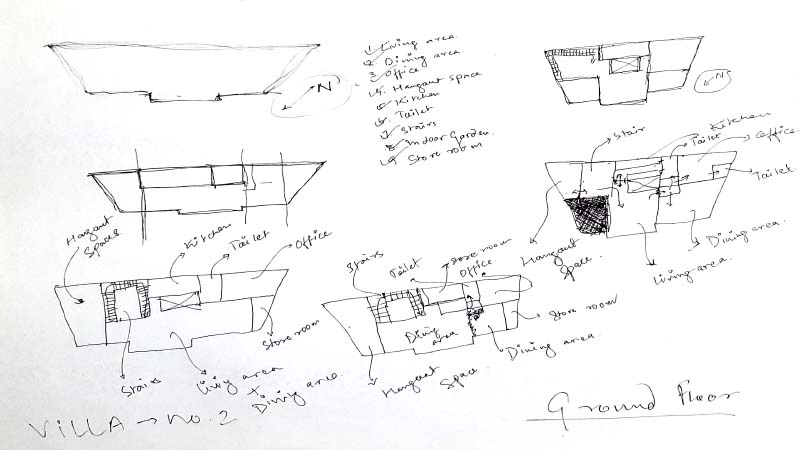 1. Living area.
2. Dining area.
3. Office
4. Hangaut space
5. Kitchen
6. Tailet
7. Stairs
8. Indoor Garden.
9. Store room
N
N
Stair
Tailet
Kitchen
Office
Tailet.
Hangaut
Space.
Living area.
Dining area.
Hangaut
Space
Kitchen
Tailet
Office
Store room
Stairs
living area
+
Dining area.
Stairs
Tailet
store room
office
Dining
area
store room
Dining area.
Hangaut
Space.
VILLA → no. 2
Ground Floor